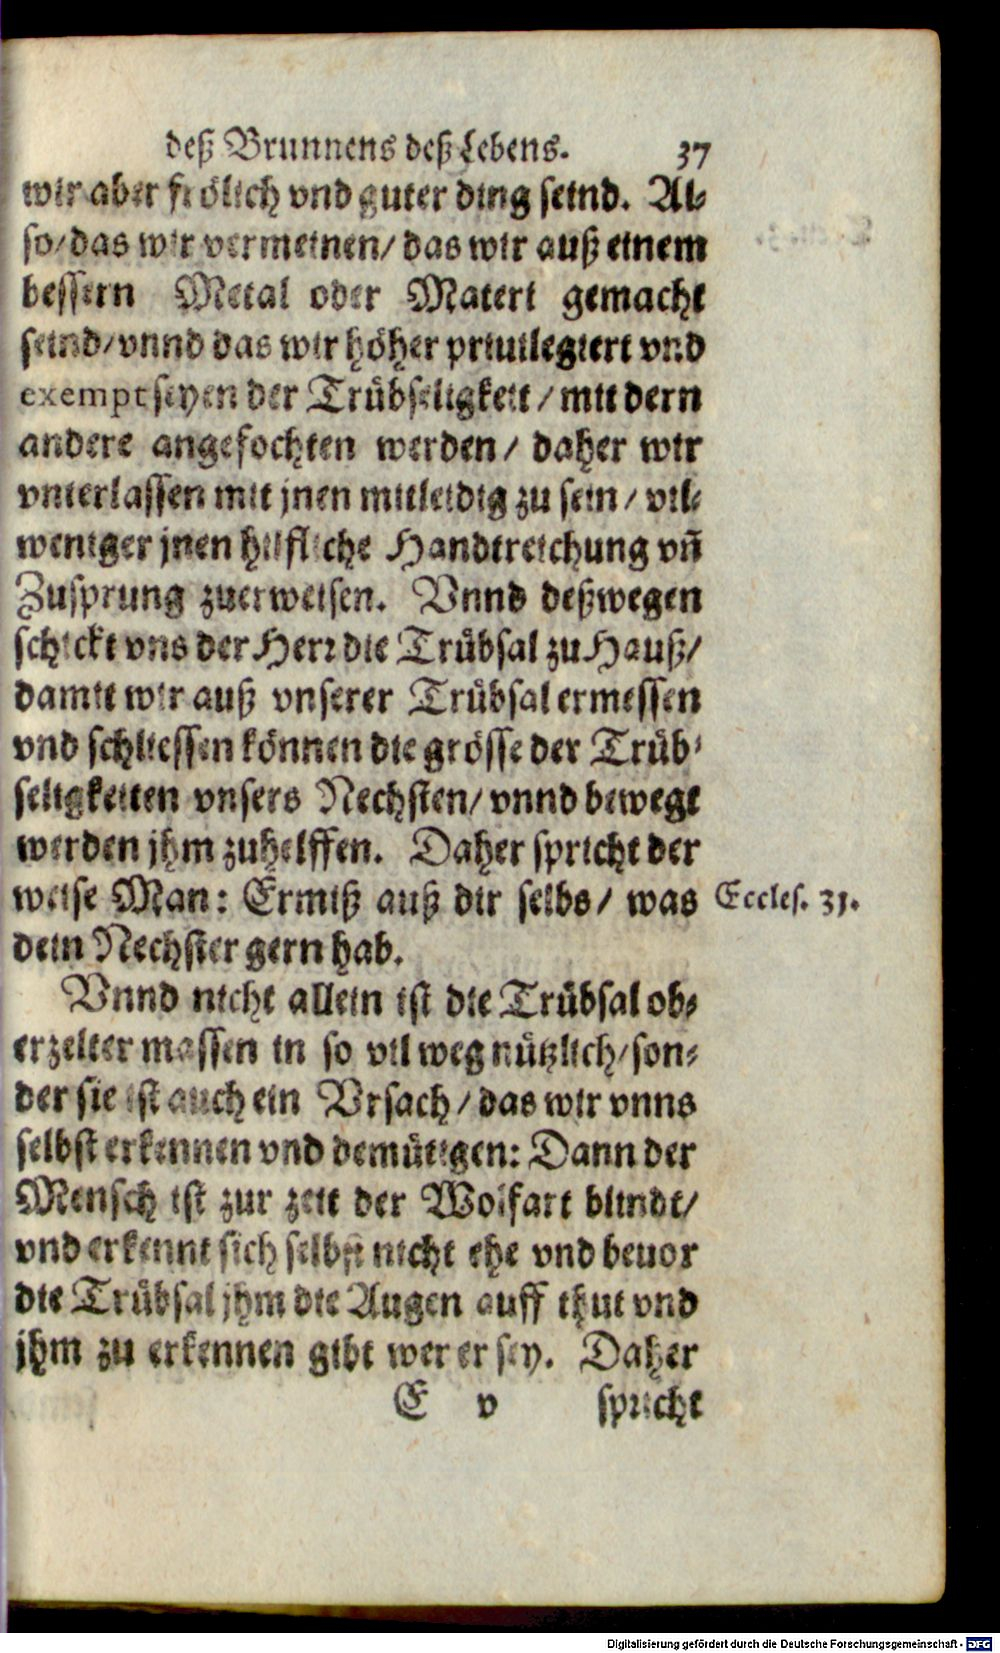 deß Brunnens deß Lebens. 37
wir aber frölich vnd guter ding seind. Al-
so/das wir vermeinen/das wir auß einem
bessern Metal oder Materi gemacht
seind/vnnd das wir höher priuilegiert vnd
exempt seyen der Trübseligkeit/mit dern
andere angefochten werden/daher wir
vnterlassen mit jnen mitleidig zu sein/vil-
weniger jnen hilfliche Handtreichung vñ
Zusprung zuerweisen. Vnnd deßwegen
schickt vns der Herr die Trübsal zu Hauß/
damit wir auß vnserer Trübsal ermessen
vnd schliessen können die grösse der Trüb-
seligkeiten vnsers Nechsten/vnnd bewegt
werden jhm zuhelffen. Daher spricht der
weise Man: Ermiß auß dir selbs/was
Eccles. 31.
dein Nechster gern hab.
Vnnd nicht allein ist die Trübsal ob-
erzelter massen in so vil weg nützlich/son-
der sie ist auch ein Vrsach/das wir vnns
selbst erkennen vnd demütigen: Dann der
Mensch ist zur zeit der Wolfart blindt/
vnd erkennt sich selbst nicht ehe vnd beuor
die Trübsal jhm die Augen auff thut vnd
jhm zu erkennen gibt wer er sey. Daher
E v spricht
Digitalisierung gefördert durch die Deutsche Forschungsgemeinschaft - DFG